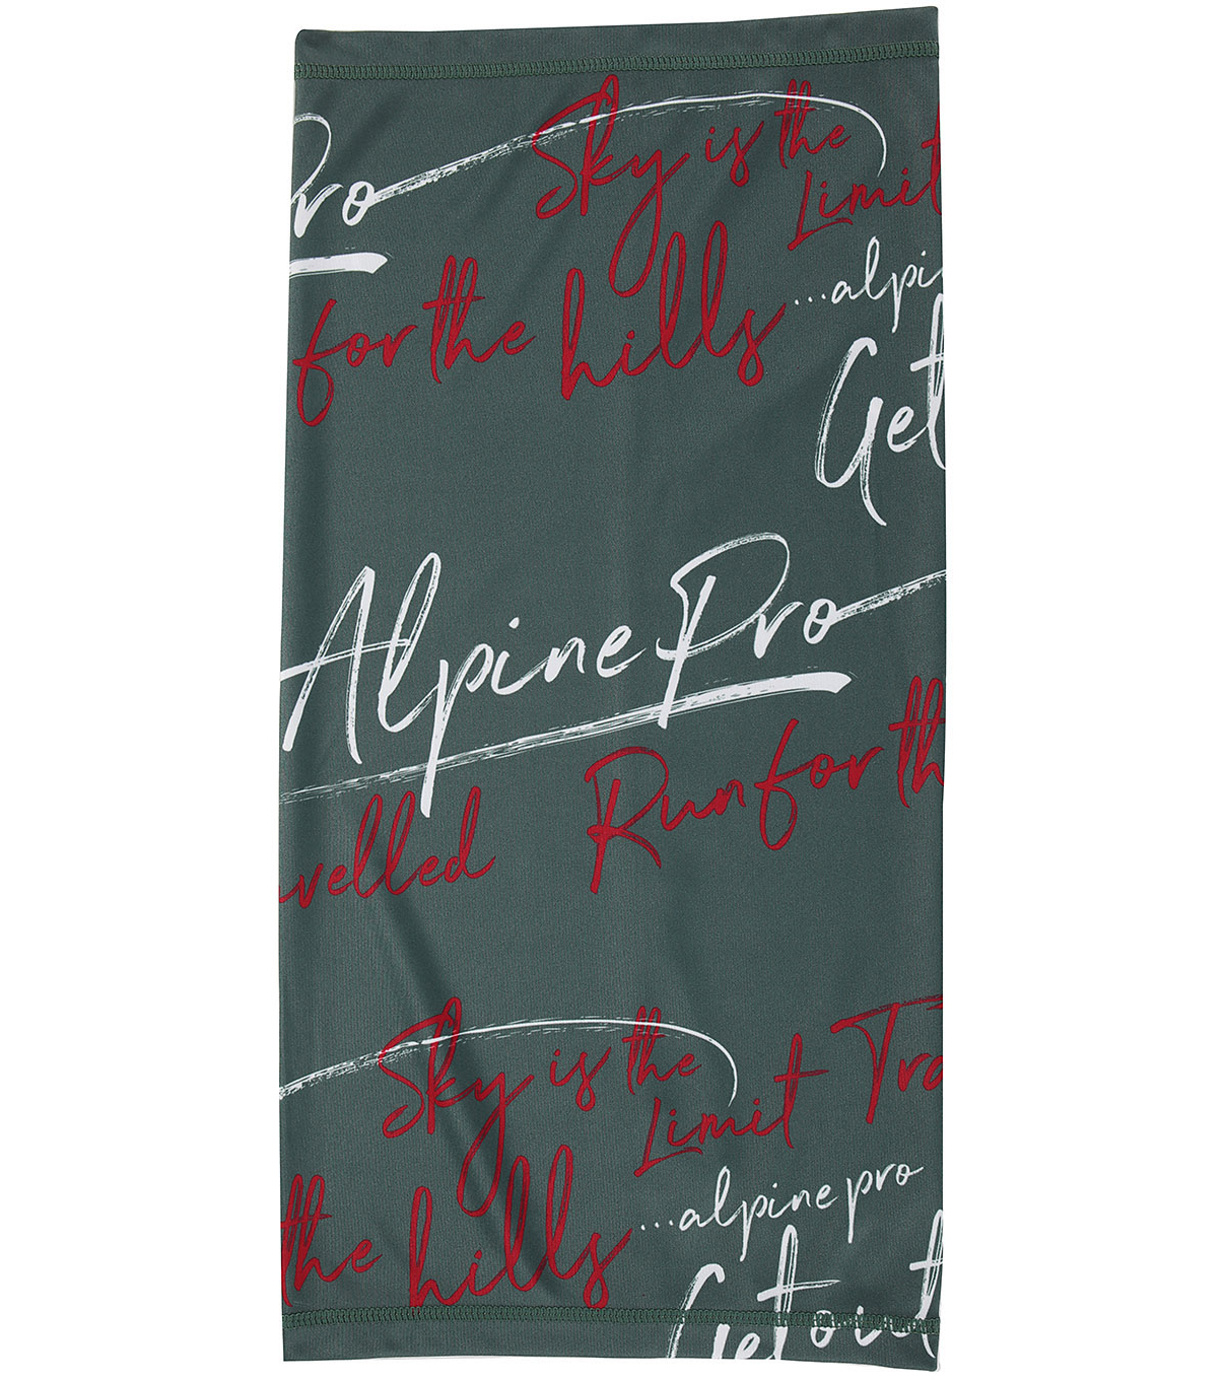 Pro
Sky is the
Limit
for the hills
...alpi
Get
Alpine Pro
Run for th
velled
Sky is the
Limit Tra
the hills
...alpine pro
Get out